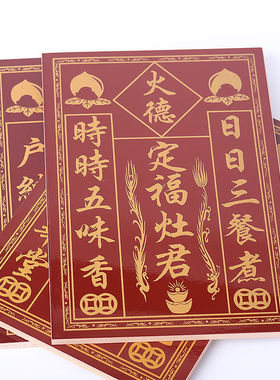 火德
日日三餐煮
定福灶君
時時五味香
户
堂